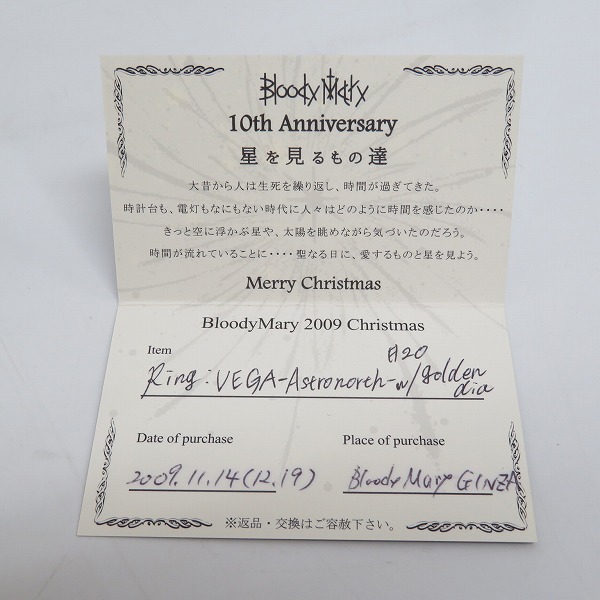 Bloody Mary
10th Anniversary
星を見るもの達
大昔から人は生死を繰り返し、時間が過ぎてきた。
時計台も、電灯もなにもない時代に人々はどのように時間を感じたのか・・・・
きっと空に浮かぶ星や、太陽を眺めながら気づいたのだろう。
時間が流れていることに・・・・聖なる日に、愛するものと星を見よう。
Merry Christmas
BloodyMary 2009 Christmas
Item
#20
Ring: VEGA-Astronorth-w/golden
dia
Date of purchase
Place of purchase
2009.11.14(12.19)
Bloody Mary GINZA
※返品・交換はご容赦下さい。